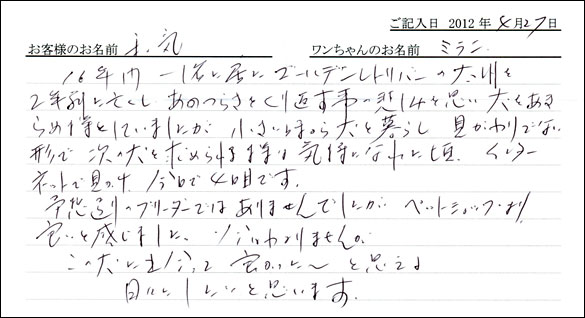 ご記入日 2012年 4月27日
お客様のお名前 ワンちゃんのお名前 ミラン
16年間一緒に居たゴールデンレトリバーの大輔を
2年前に亡くし あのつらさをくり返す事の悲しみを思い 犬をあき
らめ様としていましたが 小さい時から犬と暮らし 見がわりでない
形で 次の犬を求められる様な気持になれた頃、インター
ネットで見つけ 今日で4日目です。
予想通りのブリーダーではありませんでしたが ペットショップより
良いと感じました。 かわりませんが
この犬に出会って 良かった〜と思える
日々にしたいと思います。